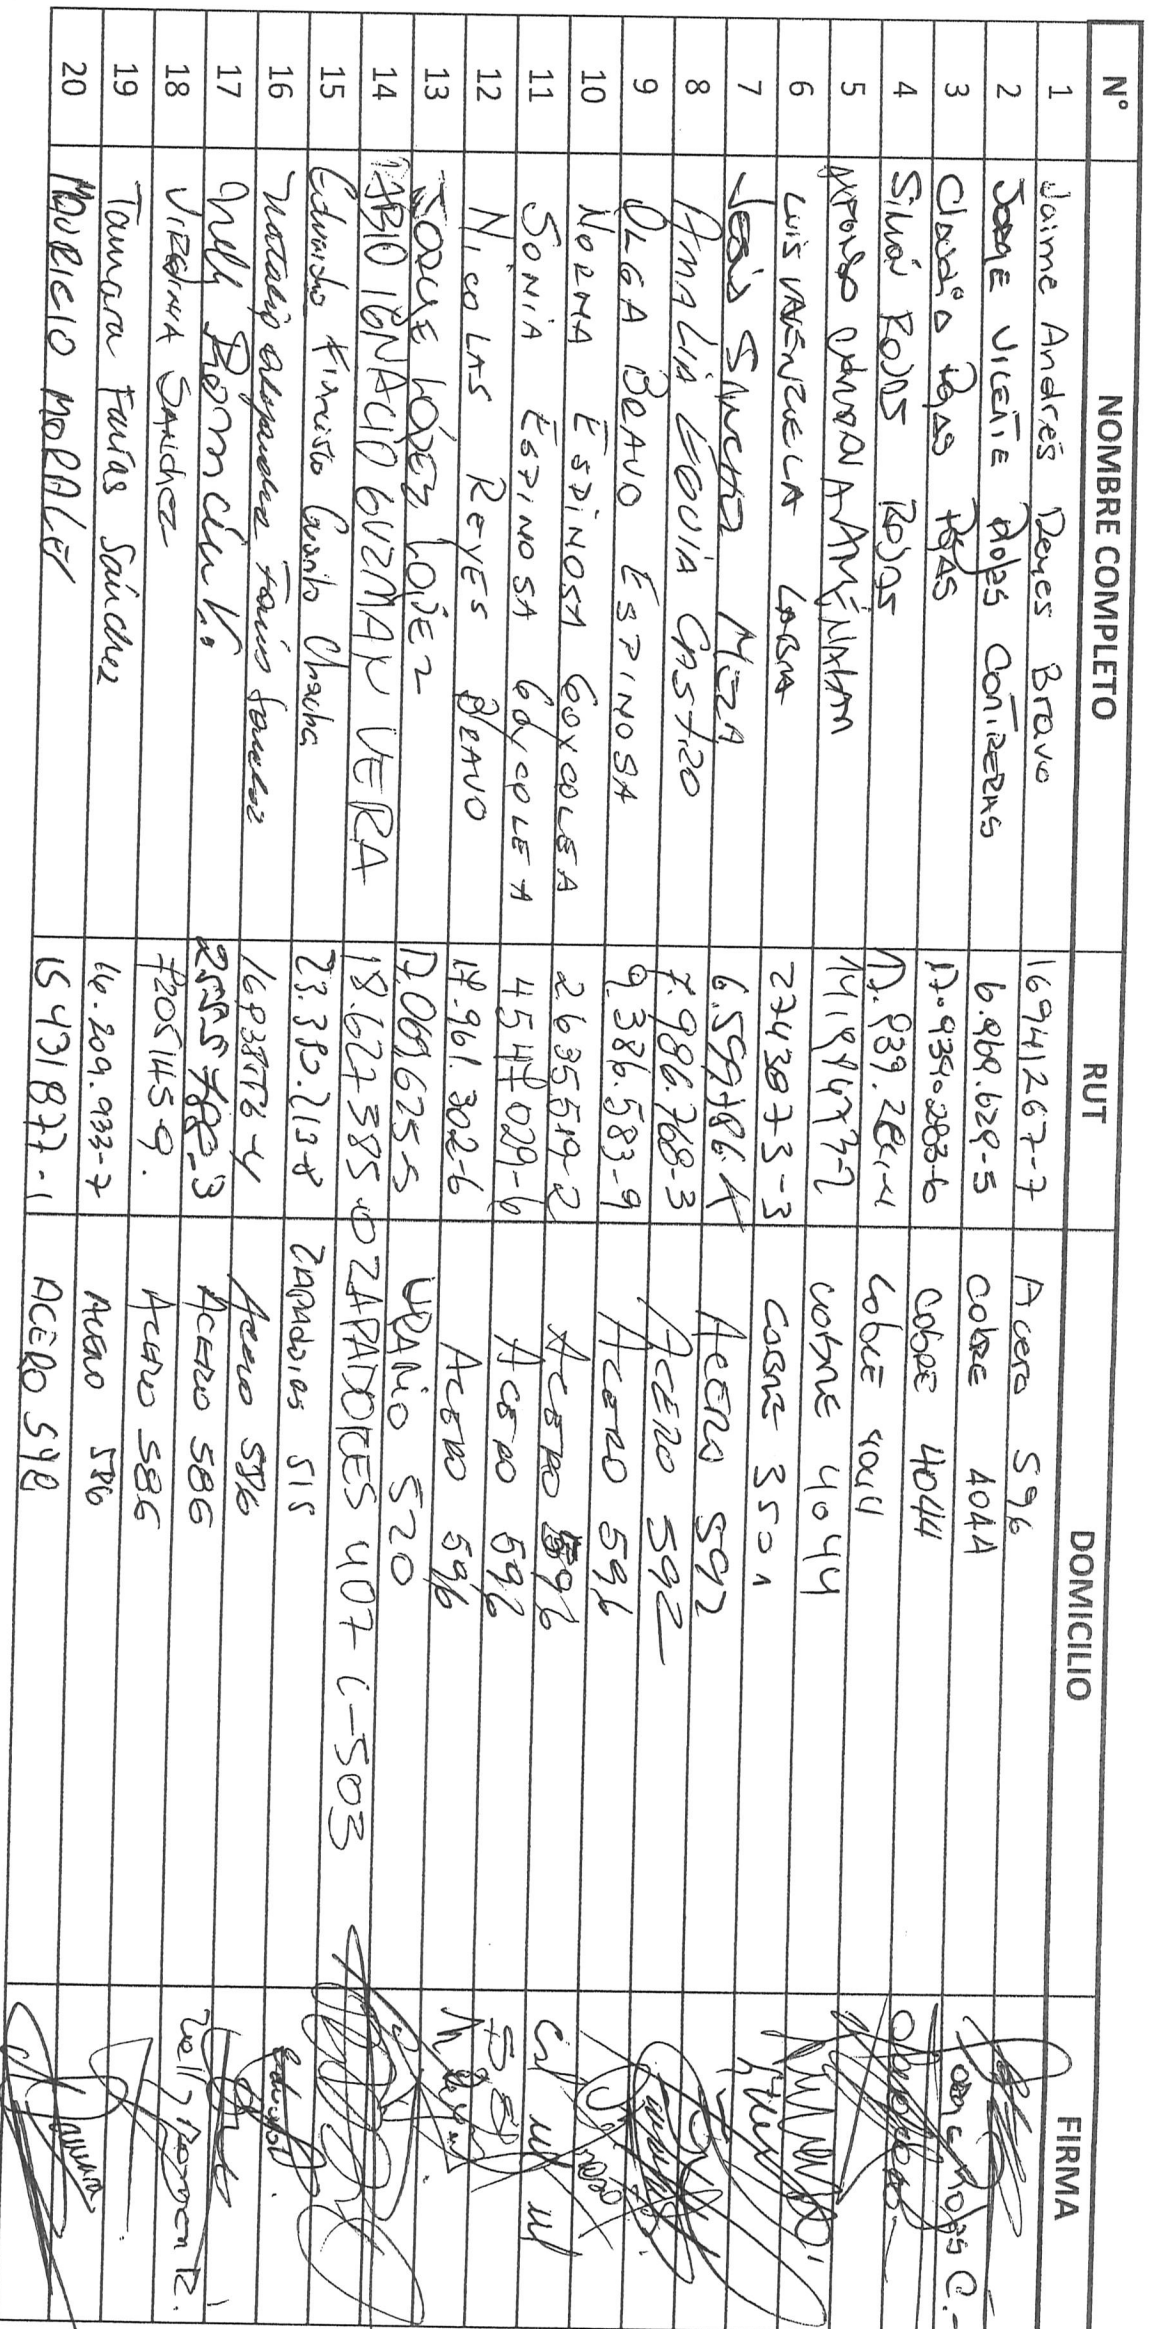 N° NOMBRE COMPLETO RUT DOMICILIO FIRMA
1 Jaime Andrés Reyes Bravo 16941267-7 Acero 596
2 JORGE VICENTE Rojas CONTRERAS 6.969.629-5 COBRE 4044 Jorge Rojas C.-
3 Claudio Rojas Rojas COBRE 4044
4 Silvia ROJAS ROJAS Cobre 4044
5 COBRE 4044
6 LUIS VALENZUELA LABRA 27438073-3 COBRE 3501
7 Jesús SANCHEZ MEZA 6.599.786-K ACERO 592
8 AMALIA CASTRO 7.986.768-3 ACERO 592
9 OLGA BRAVO ESPINOSA 9.386.583-9 ACERO 596
10 NORMA ESPINOSA GOYCOLEA 2635519-2 ACERO 596
11 SONIA ESPINOSA GOYCOLEA 4547029-6 ACERO 596
12 NICOLAS REYES BRAVO 17.961.302-6 ACERO 596
13 JORGE LÓPEZ LOPEZ 17.069.625-5 URANIO 520
14 FABIO IGNACIO GUZMAN VERA 18.627.385-0 ZAPADORES 407 C-503
15 Eduardo Chacha ZAPADORES 515
16 Farias Sanchez Acero 586
17 Nelly ACERO 586
18 VIRGINIA SANCHEZ 7205145-9. ACERO 586
19 Tamara Farías Sánchez 16.209.933-7 ACERO 586
20 MAURICIO MORALES 15431877-1 ACERO 598